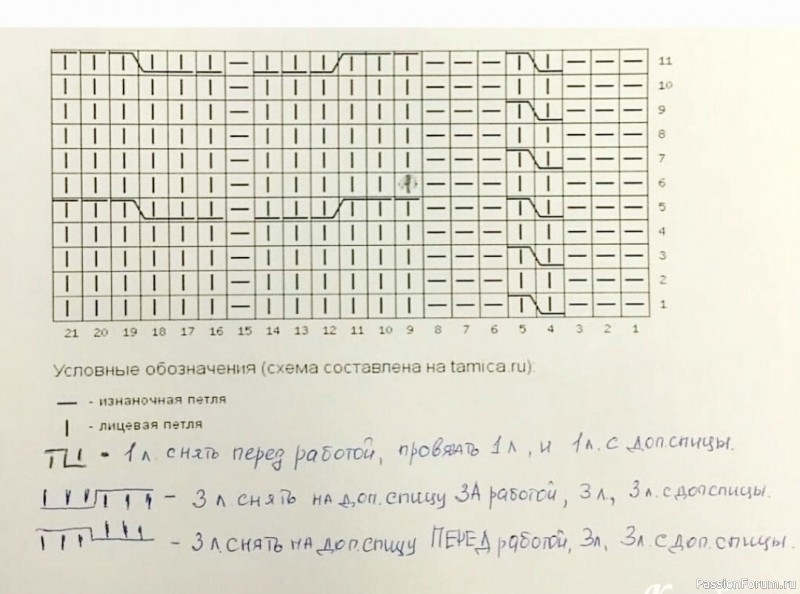 11
10
9
8
7
6
5
4
3
2
1
21 20 19 18 17 16 15 14 13 12 11 10 9 8 7 6 5 4 3 2 1
Условные обозначения (схема составлена на tamica.ru):
- изнаночная петля
- лицевая петля
- 1 л. снять перед работой, провязать 1 л, и 1 л. с доп. спицы.
- 3 л. снять на доп. спицу ЗА работой, 3 л, 3 л. с доп спицы.
- 3 л. снять на доп. спицу ПЕРЕД работой, 3 л, 3 л. с доп. спицы.
PassionForum.ru